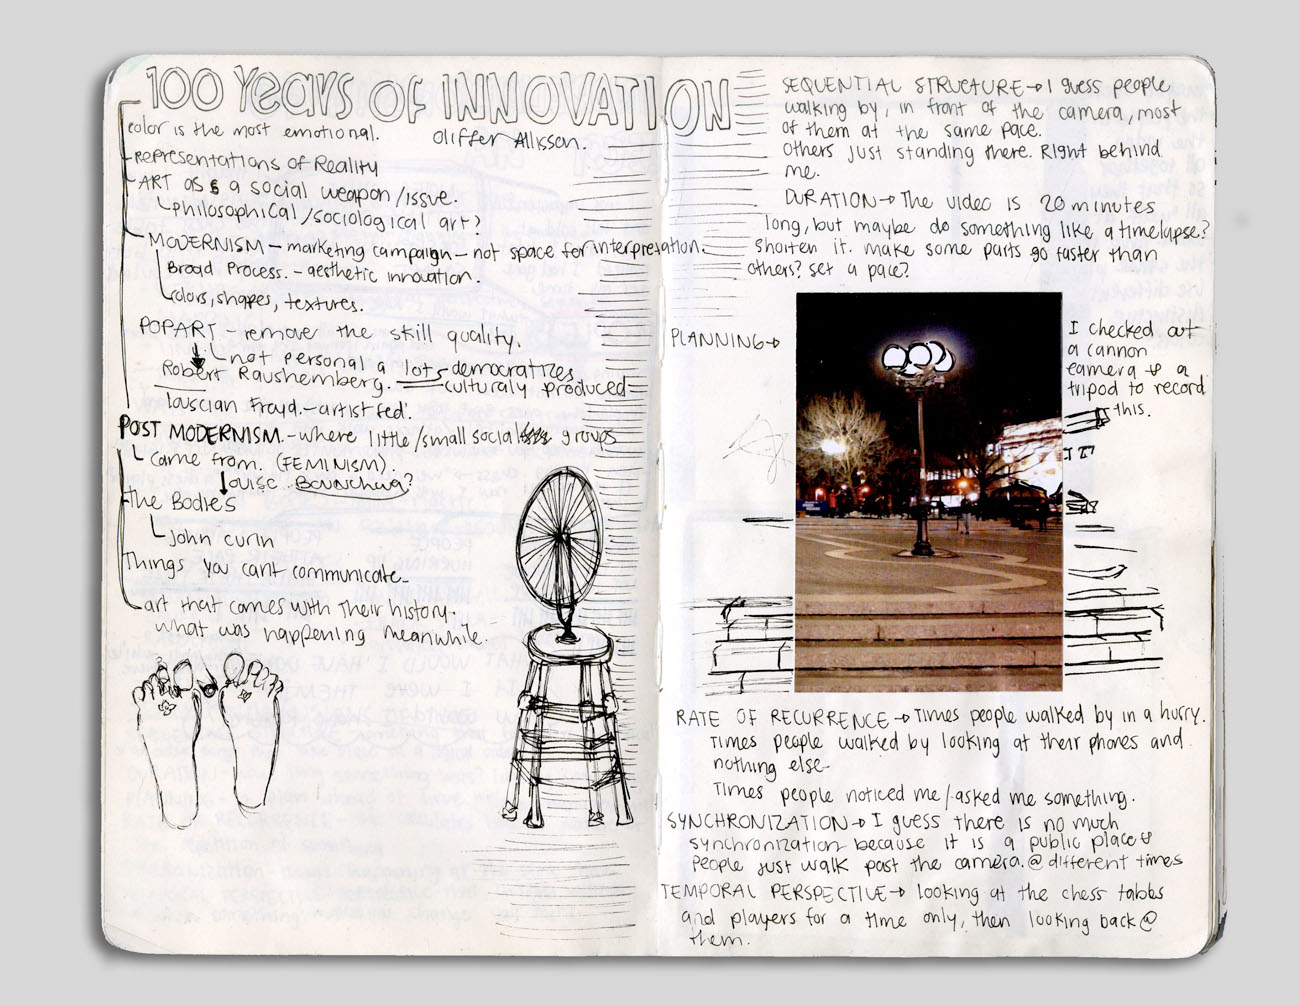 100 Years OF INNOVATION
color is the most emotional.
Oliffer Allisson.
Representations of Reality
ART as a social weapon/issue.
Philosophical/sociological art?
MODERNISM - marketing campaign - not space for interpretation.
Broad Process. - aesthetic innovation
colors, shapes, textures.
POPART - remove the still quality.
not personal a lot democratizes
Robert Raushemberg. culturaly produced
Louscian Froyd. - artist fed.
POST MODERNISM. - where little/small social groups
came from. (FEMINISM).
Louise Bounchwa?
the Bodies
John curin
Things you cant communicate
art that comes with their history.
what was happening meanwhile.
SEQUENTIAL STRUCTURE → I guess people
walking by, in front of the camera, most
of them at the same pace.
Others just standing there. Right behind
me.
DURATION → The video is 20 minutes
long, but maybe do something like a timelapse?
shorten it. make some parts go faster than
others? set a pace?
PLANNING →
I checked out
a cannon
camera & a
tripod to record
this.
RATE OF RECURRENCE → Times people walked by in a hurry.
Times people walked by looking at their phones and
nothing else
Times people noticed me/asked me something.
SYNCHRONIZATION → I guess there is no much
synchronization because it is a public place &
people just walk past the camera @ different times
TEMPORAL PERSPECTIVE → looking at the chess tables
and players for a time only, then looking back @
them.